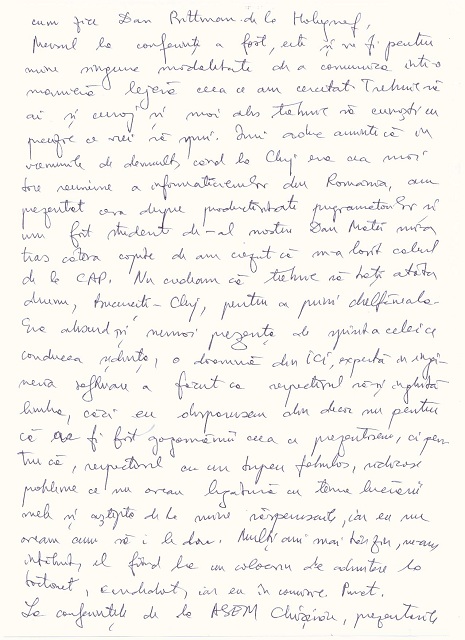 cum zice Dan Brittman de la Holograf,
Mersul la conferințe a fost, este și va fi pentru
mine singura modalitate de a comunica într-o
manieră lejeră ceea ce am cercetat. Trebuie să
ai și curaj și mai ales trebuie să cunoști cu
precizie ce vrei să spui. Îmi aduc aminte că în
vremurile de demult, când la Cluj era cea mai
tare reuniune a informaticienilor din Romania, am
prezentat ceva despre productivitatea programatorilor și
un fost student de-al nostru Dan Matei mi-a
tras câteva copite de am crezut că m-a lovit calul
de la CAP. Nu credeam că trebuie să bați atâta
drumu, București-Cluj, pentru a primi
Era absurd și numai prezența de spirit a celei ce
conducea ședința, o doamnă din ICI, expertă în ingi-
neria software a făcut ca respectivul să-și înghită
limba, căci eu dispărusem din decor nu pentru
că ar fi fost gogomănii ceea ce prezentasem, ci pen-
tru că, respectivul cu un tupeu fabulos, ridicase
probleme ce nu aveau legătură cu tema lucrării
mele și aștepta de la mine răspunsuri, iar eu nu
aveam cum să i le dau. Mulți ani mai târziu, ne-am
întâlnit, el fiind la un colocviu de admitere la
doctorat, candidat, iar eu în comisie. Punct.
La conferințele de la ASEM Chișinău, prezentările